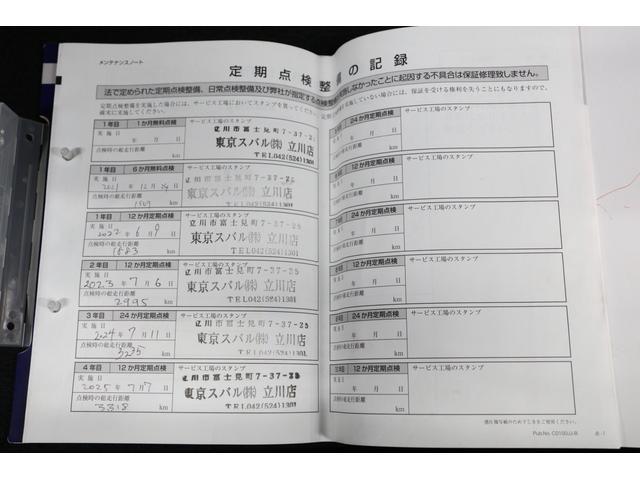 メンテナンスノート
定期点検整備の記録
法で定められた定期点検整備、日常点検整備及び弊社が指定する点検整備
実施しなかったことに起因する不具合は保証修理致しません。
定期点検整備を実施した場合には、サービス工場においてスタンプを
確実に実施してください。
していない場合には、保証を受ける権利を失うこともなりますので、
1年目 1か月無料点検 サービス工場のスタンプ
実施日 年 月 日
点検時の総走行距離 km
立川市富士見町7-37-25
東京スバル㈱立川店
TEL042(524)1301
1年目 6か月無料点検 サービス工場のスタンプ
実施日 2021年 12月 24日
点検時の総走行距離 km
立川市富士見町7-37-25
東京スバル㈱立川店
TEL042(524)1301
1年目 12か月定期点検 サービス工場のスタンプ
実施日 2022年 6月 9日
点検時の総走行距離 1883 km
立川市富士見町7-37-25
東京スバル㈱立川店
TEL042(524)1301
2年目 12か月定期点検 サービス工場のスタンプ
実施日 2023年 7月 6日
点検時の総走行距離 2995 km
立川市富士見町7-37-25
東京スバル㈱立川店
TEL042(524)1301
3年目 24か月定期点検 サービス工場のスタンプ
実施日 2024年 7月 11日
点検時の総走行距離 3235 km
立川市富士見町7-37-25
東京スバル㈱立川店
TEL042(524)1301
4年目 12か月定期点検 サービス工場のスタンプ
実施日 2025年 7月 7日
点検時の総走行距離 3318 km
立川市富士見町7-37-25
東京スバル㈱立川店
TEL042(524)1301
サービス工場のスタンプ
年 月 日
km
サービス工場のスタンプ
年 月 日
km
サービス工場のスタンプ
年 月 日
km
サービス工場のスタンプ
年 月 日
km
サービス工場のスタンプ
年 月 日
km
サービス工場のスタンプ
年 月 日
km
Pub.No.